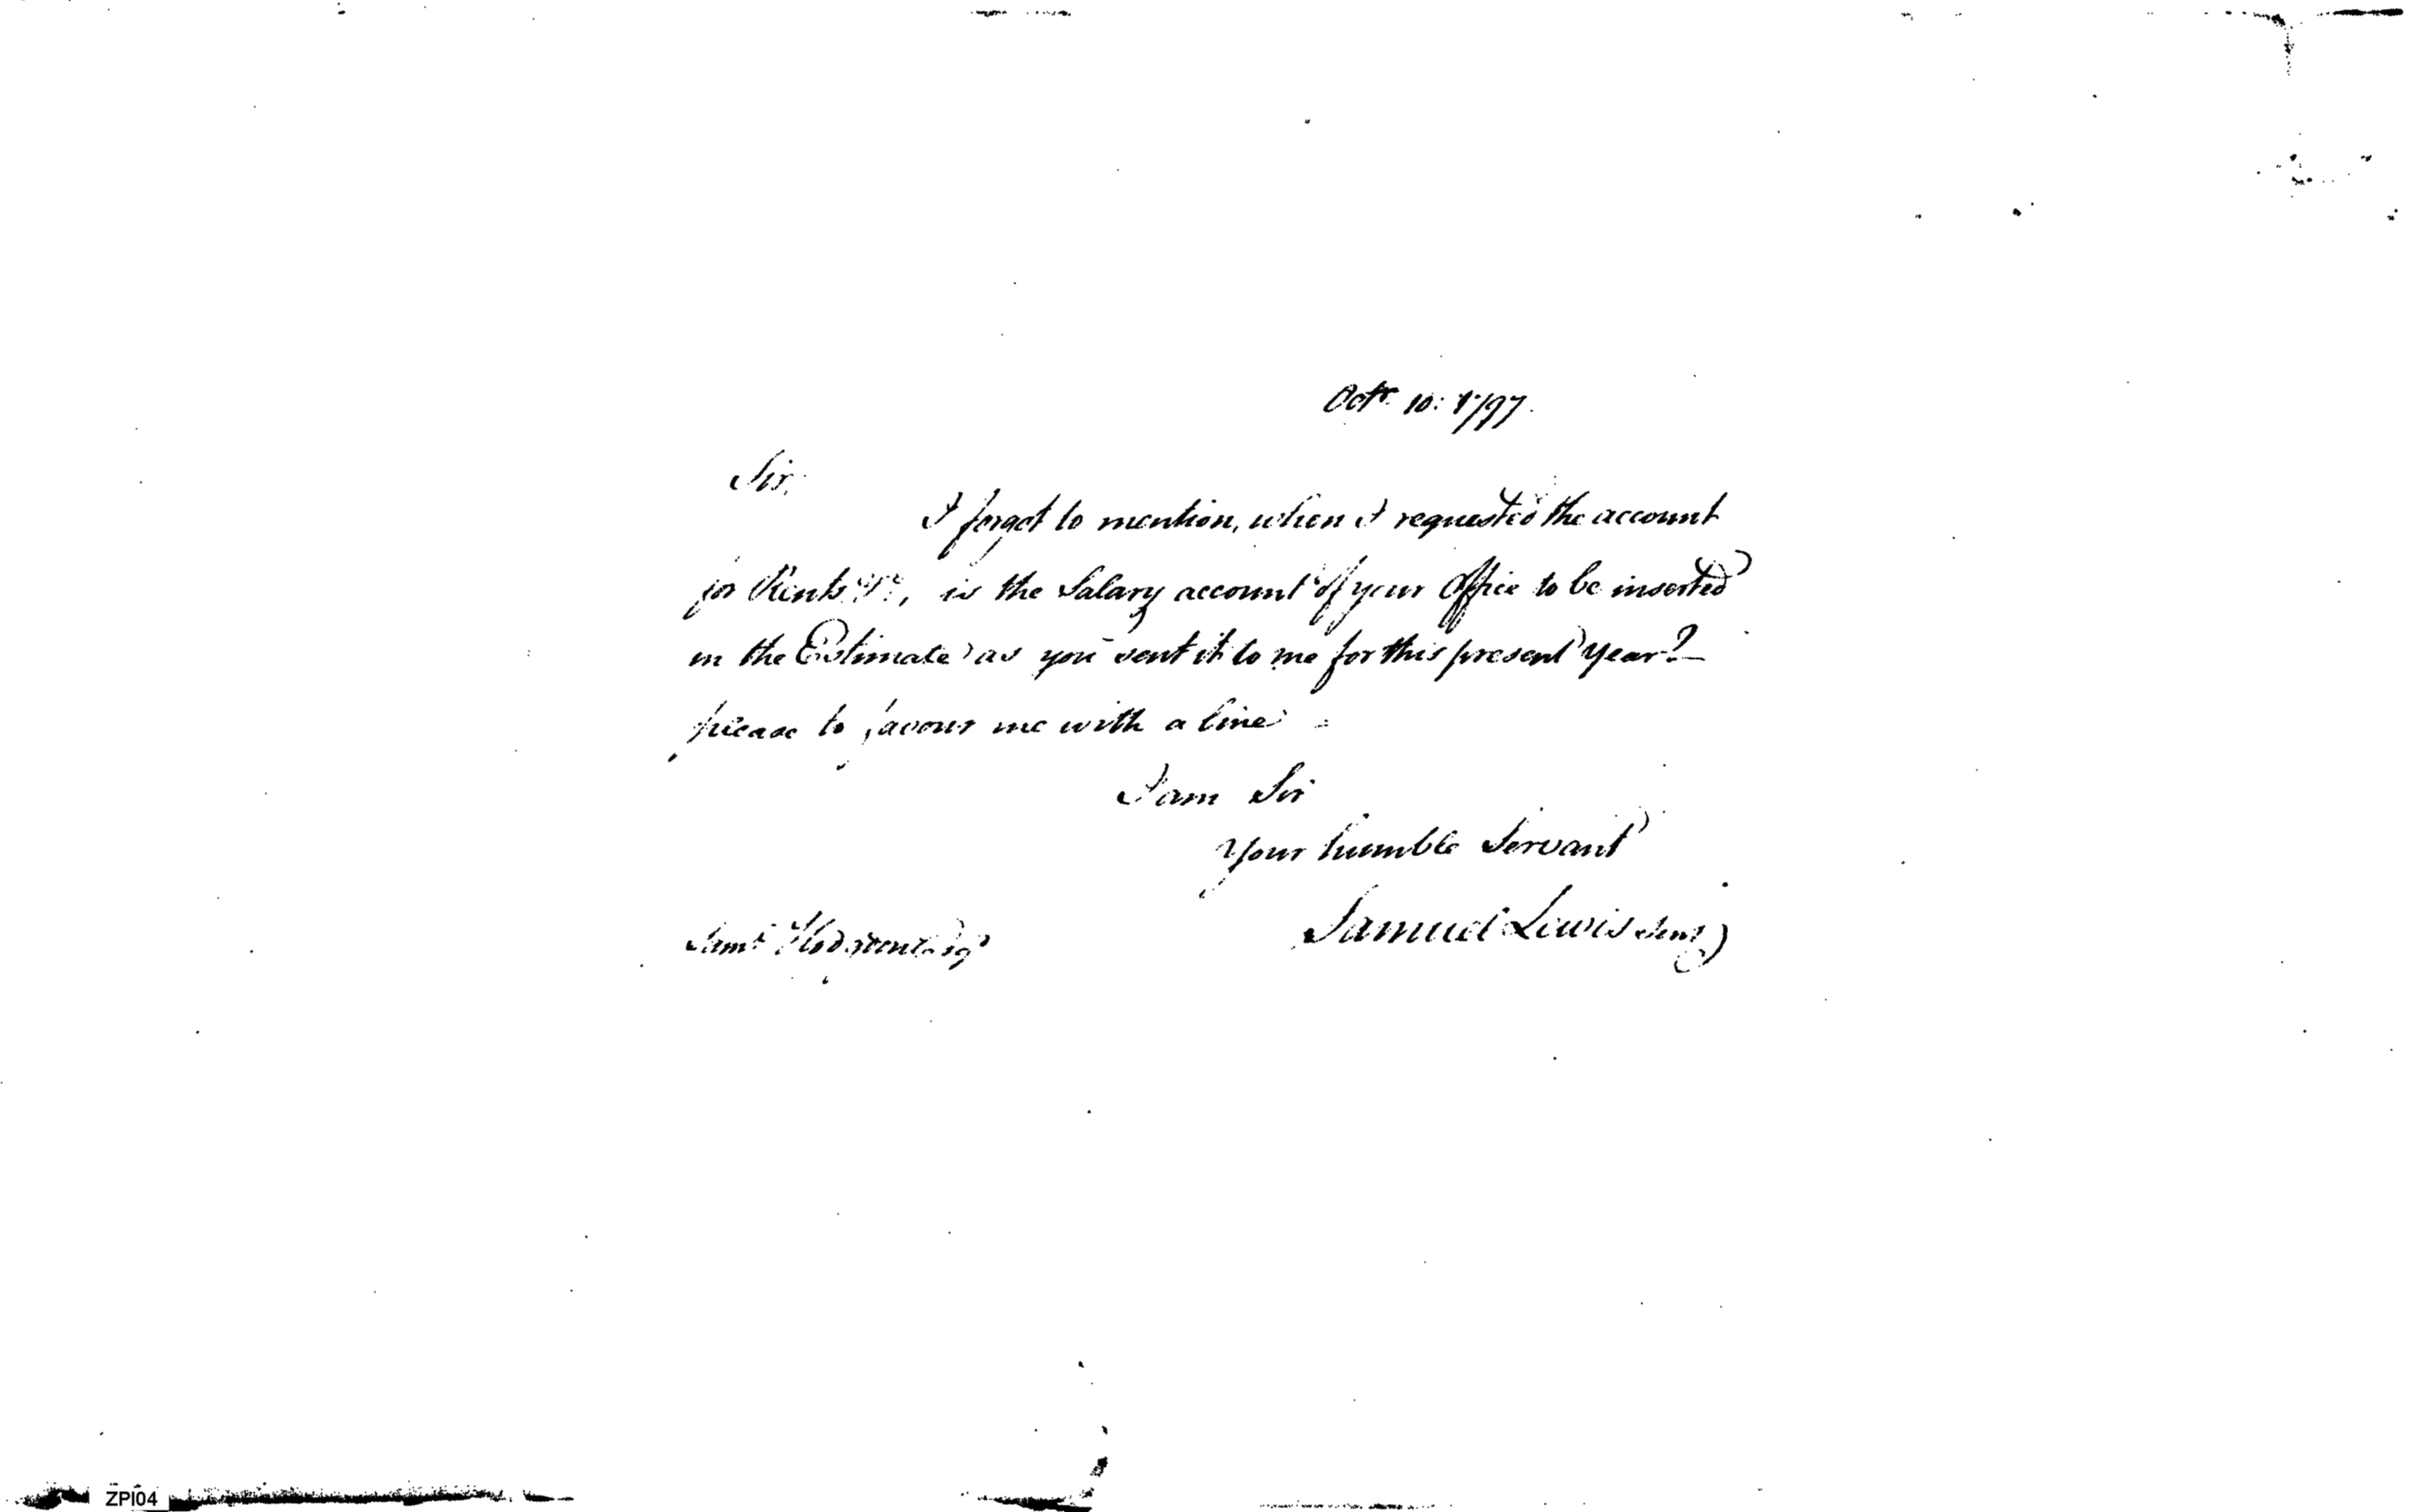 Octr 10: 1797.
Sir,
I forgot to mention, when I requested the account
for Rents &c, is the Salary account of your Office to be inserted
in the Estimate as you sent it to me for this present year?—
please to favour me with a line
I am Sir
Your humble Servant
Samuel Lewis senr
Saml Hodgdon Esqr
ZPI04